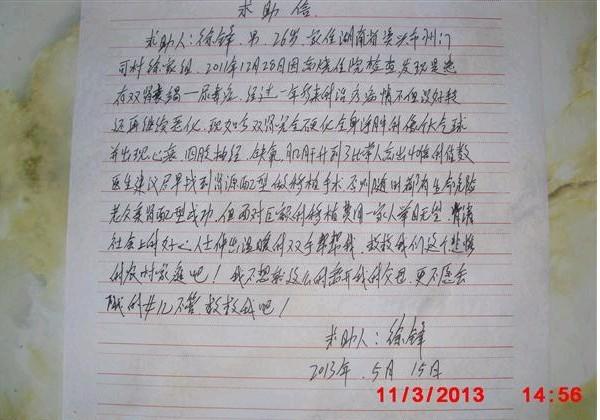 求助信
求助人：徐锋 男 26岁 家住湖南省 洲门
可村徐家组 2011年12月28日因高烧住院检查发现是患
有双肾衰竭—尿毒症 经过一年多来的治疗病情不但没好转
还再继续恶化 现如今双肾完全硬化全身浮肿的像似气球
并出现心衰 四肢抽经 缺氧 肌酐升到了比常人高出 倍的倍数
医生建议尽早找到肾源配型做移植手术 否则随时都有生命危险
老父亲肾配型成功 但面对巨额的移植费用一家人举目无望 恳请
社会上的好心人仕伸出温暖的双手帮帮我 救救我们这个悲惨
的农村家庭吧！我不想就这么的离开我的父母 更不愿去
的女儿不管 救救我吧！
求助人：徐锋
2013年 5月 15日
11/3/2013 14:56